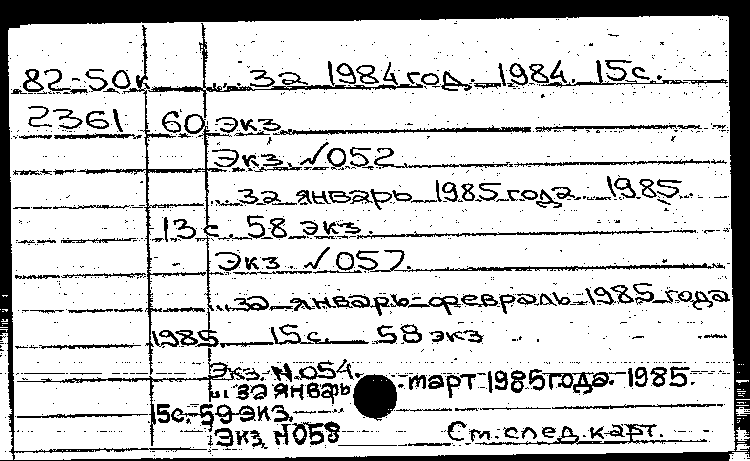 82-50к ... за 1984 год. 1984. 15с.
2361 60 экз.
Экз. №052
... за январь 1985 года 1985.
13с. 58 экз.
Экз. №057.
... за январь-февраль 1985 года
1985. 15с. 58 экз
Экз. N.054.
... за январь - март 1985 года. 1985.
15с. 59 экз.
Экз. N058 См. след. карт.